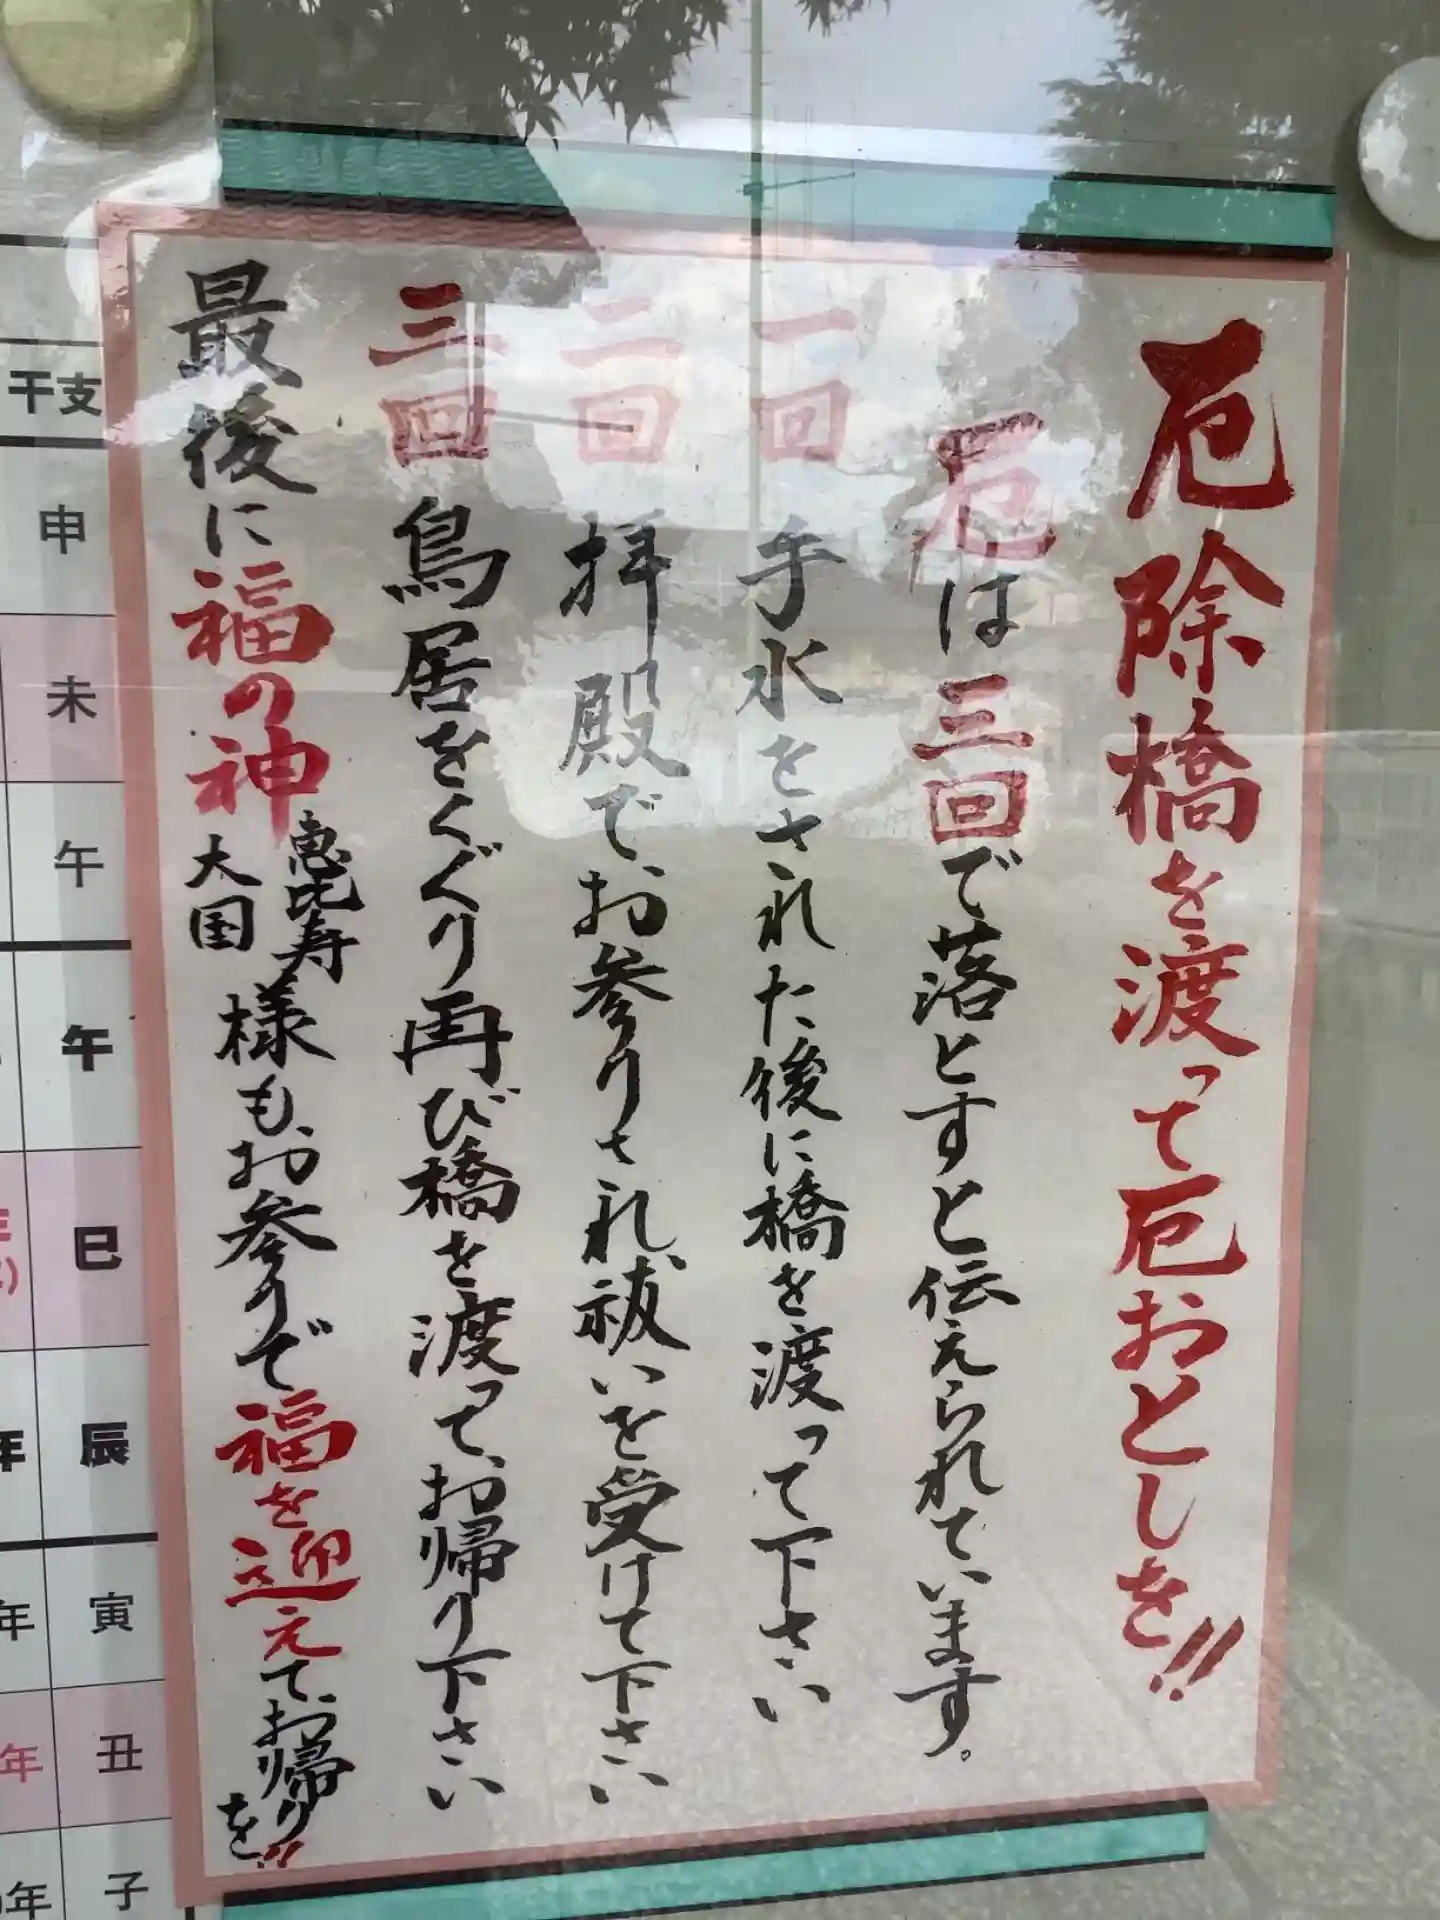 厄除橋を渡って厄おとしを!!
厄は三回で落とすと伝えられています。
一回 手水をされた後に橋を渡って下さい
二回 拝殿でお参りされ、祓いを受けて下さい
三回 鳥居をくぐり再び橋を渡って、お帰り下さい
最後に福の神 恵比寿 大国 様も、お参りで福を迎えて、お帰りを!!
干支
申
未
午
午
巳
辰
寅
丑
子
年
年
年
年